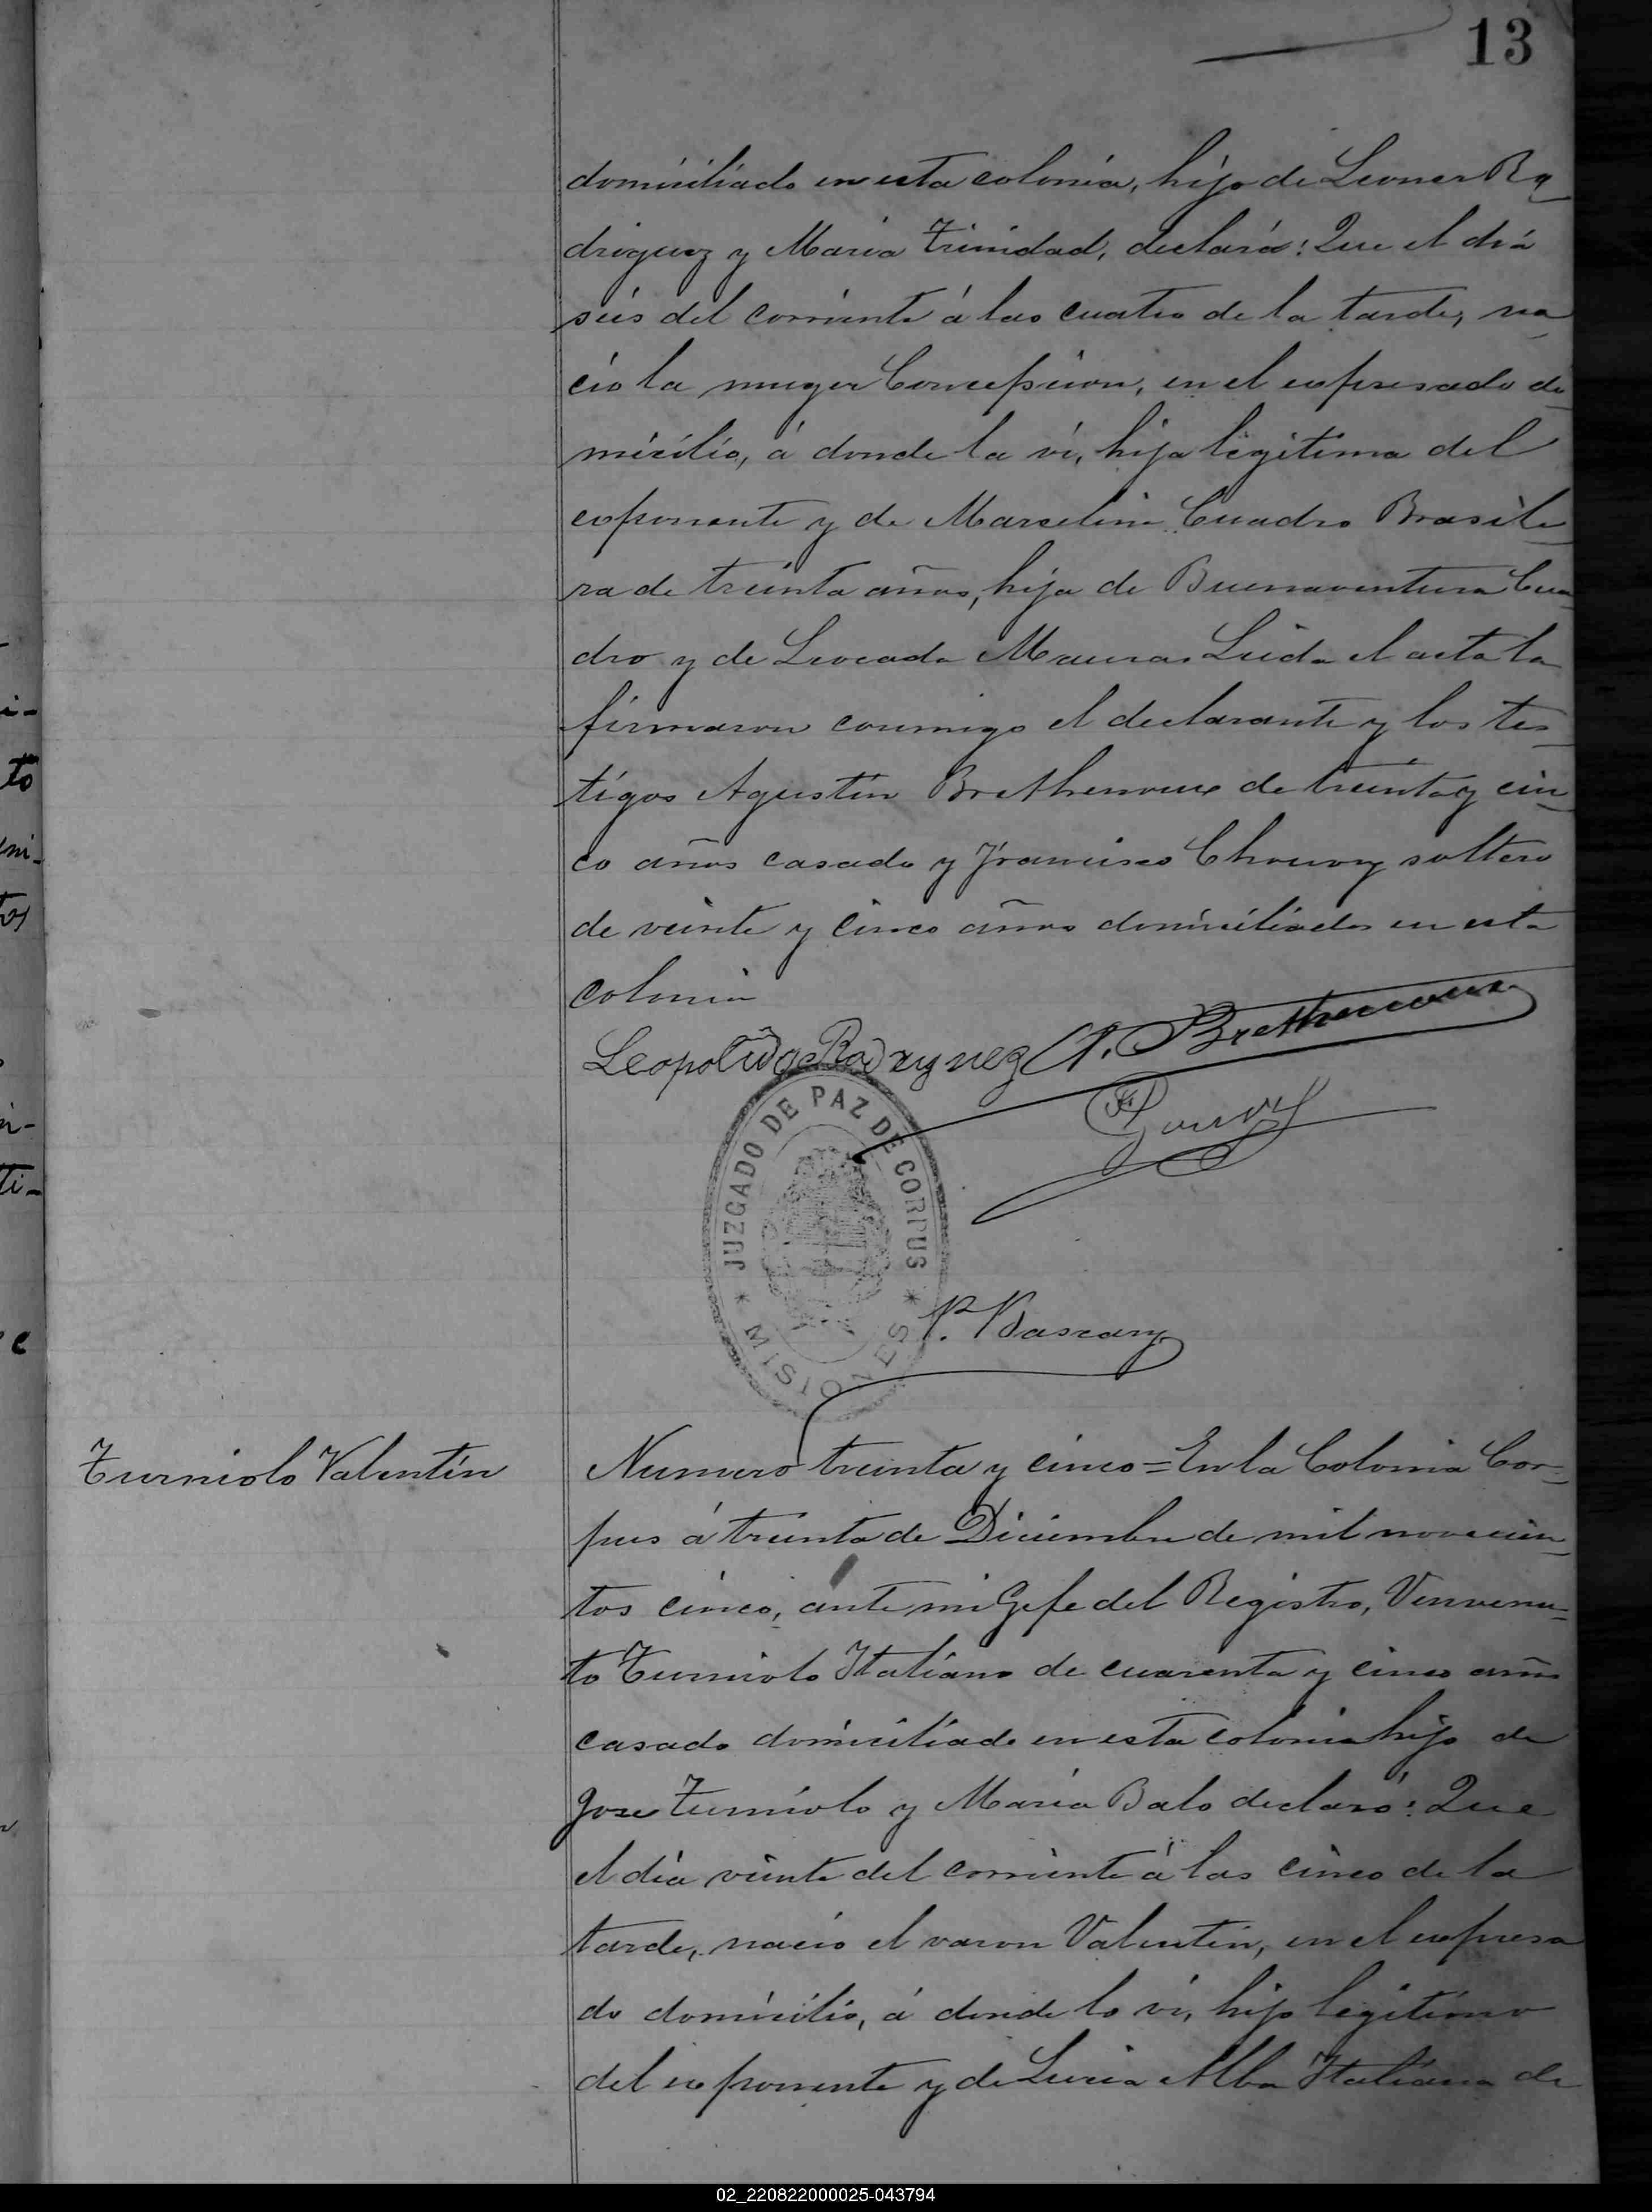 13
domiciliado en esta colonia, hijo de Leonor Ro
driguez y Maria Trinidad, declará: Que el dia
seis del corriente á las cuatro de la tarde, na
cio la muger Concepsion, en el expresado do
micilio, á donde la vi, hija legitima del
exponente y de Marcelin Cuadro Brasile
ra de treinta años, hija de Buenaventura Cua
dro y de Leocada Leida el acta la
firmaron conmigo el declarante y los tes
tigos Agustin Brethenoux de treinta y cin
co años casado y Francisco Chouvy soltero
de veinte y cinco años domiciliados en esta
colonia
Leopoldo Rodryguez A. Brethenoux
JUZGADO DE PAZ DE CORPUS
* MISIONES *
P. Bascary
Turniolo Valentin
Numero treinta y cinco = En la Colonia Cor-
pus á treinta de Diciembre de mil novecien
tos cinco, ante mi Gefe del Registro, Venvenu-
to Turniolo Italiano de cuarenta y cinco años
casado domiciliado en esta colonia hijo de
Jose Turniolo y Maria Balo declaró: Que
el dia veinte del corriente á las cinco de la
tarde, nacio el varon Valentin, en el expresa
do domicilio, á donde lo vi, hijo legitimo
del exponente y de Lucia Alba Italiana de
02_220822000025-043794